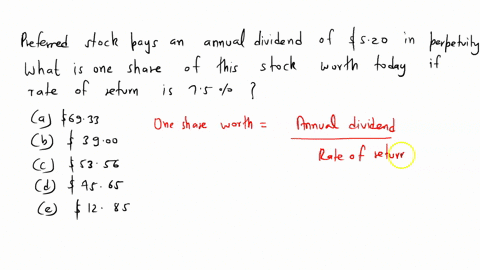 Preferred stock pays an annual dividend of $5.20 in perpetuity
What is one share of this stock worth today if
rate of return is 7.5% ?
(a) $69.33
(b) $ 39.00
(c) $ 53.56
(d) $ 45.65
(e) $ 12.85
One share worth = Annual dividend
Rate of return